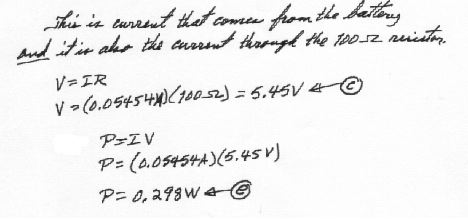 This is current that comes from the battery
and it is also the current through the 100 Ω resistor.
V=IR
V=(0.05454A)(100Ω) = 5.45V ← ⓒ
P=IV
P=(0.05454A)(5.45V)
P=0.298W ← ⓔ